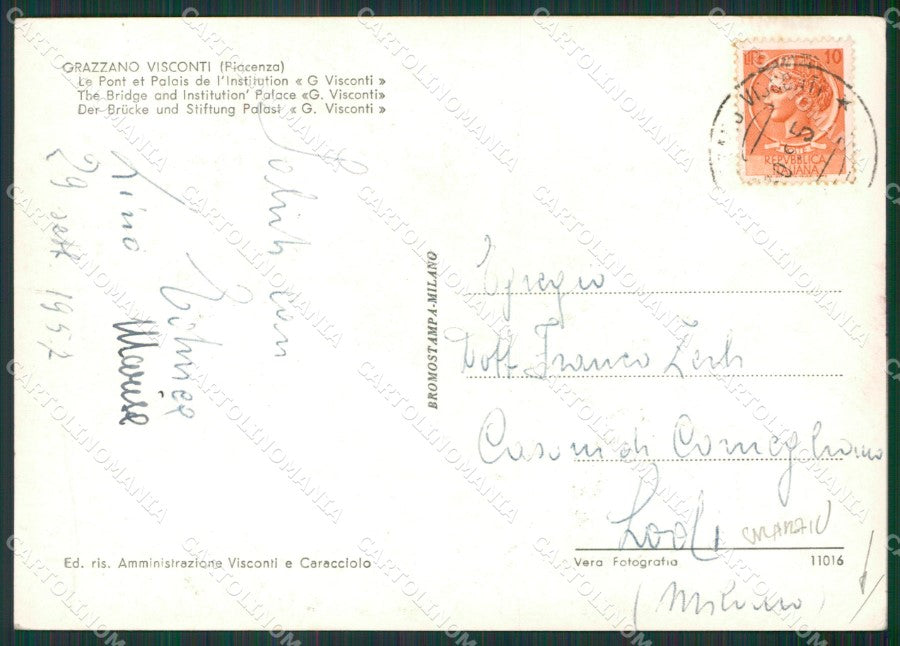 GRAZZANO VISCONTI (Piacenza)
Le Pont et Palais de l'Institution « G Visconti »
The Bridge and Institution' Palace «G. Visconti»
Der Brücke und Stiftung Palast « G. Visconti »
LIRE 10
REPVBBLICA
ITALIANA
VISCONTI
Saluti cari
Marisa
29 sett. 1957
BROMOSTAMPA-MILANO
Egregio
Dott Franco
Casoni di Comegliano
Lodi
(Milano)
Ed. ris. Amministrazione Visconti e Caracciolo
Vera Fotografia 11016
CARTOLINOMANIA